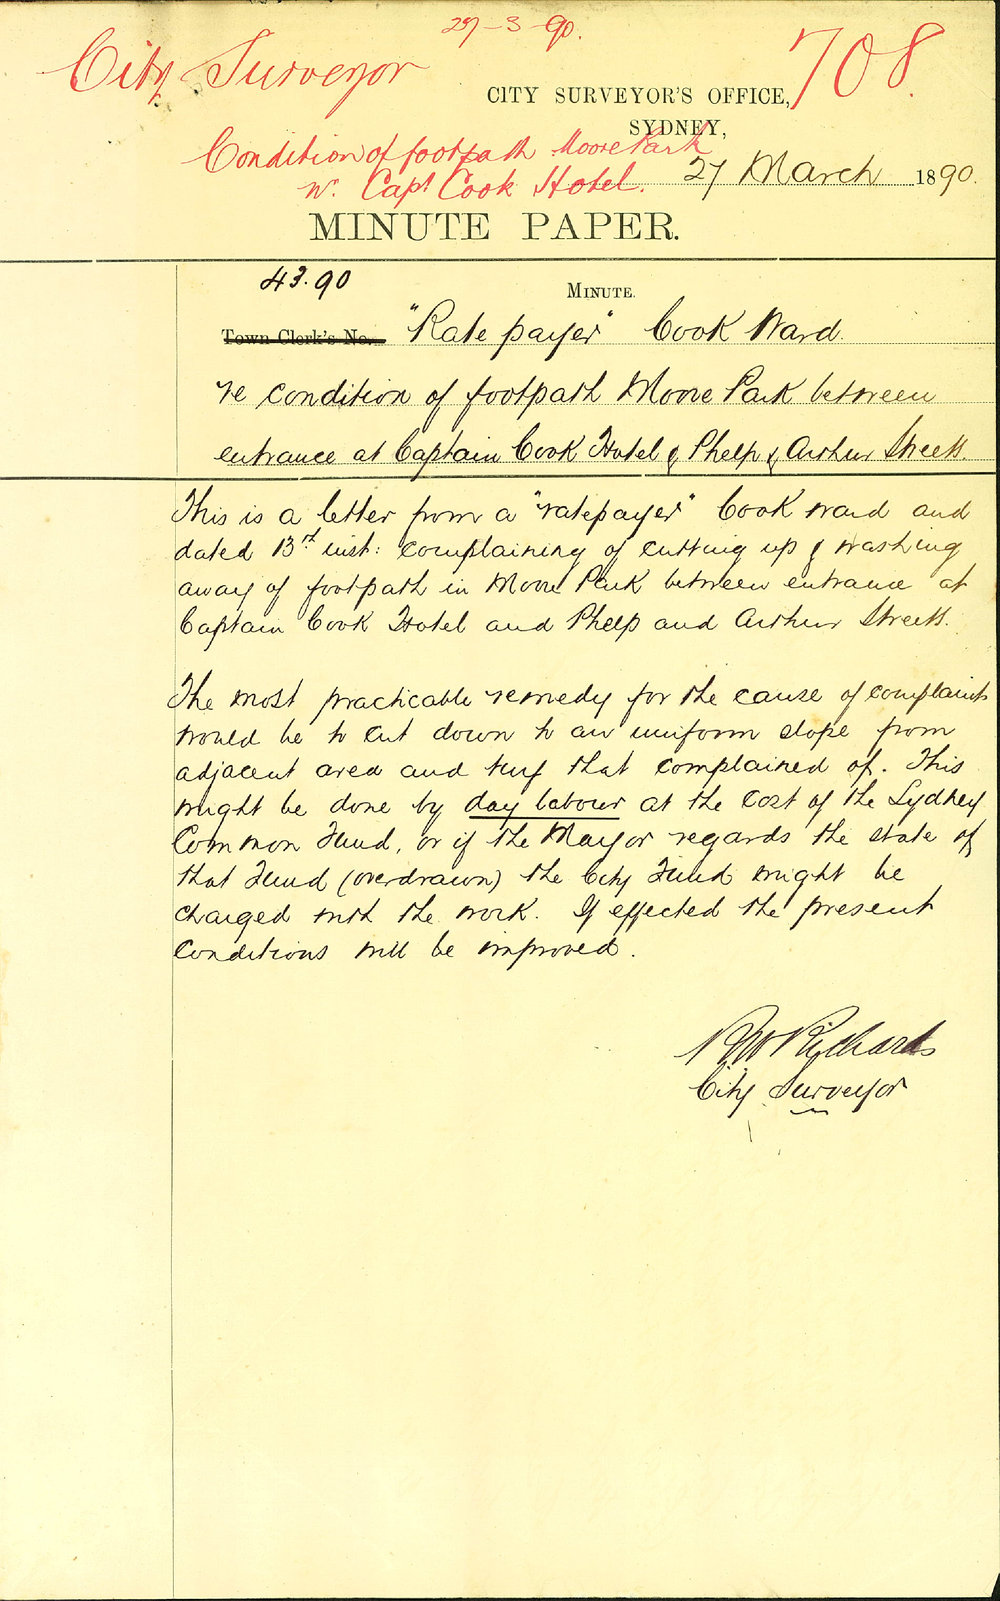 27-3-90.
City Surveyor
708.
CITY SURVEYOR'S OFFICE,
SYDNEY,
Condition of footpath Moore Park
nr. Capt Cook Hotel.
27 March 1890.
MINUTE PAPER.
43.90
MINUTE.
Town Clerk's No.
"Rate payer" Cook Ward.
re condition of footpath Moore Park between
entrance at Captain Cook Hotel & Phelp & Arthur Streets.
This is a letter from a "ratepayer" Cook Ward and
dated 13rd inst: complaining of cutting up & washing
away of footpath in Moore Park between entrance at
Captain Cook Hotel and Phelp and Arthur Streets.
The most practicable remedy for the cause of complaint
would be to cut down to an uniform slope from
adjacent area and turf that complained of. This
might be done by day labour at the cost of the Sydney
Common Fund, or if the Mayor regards the state of
that Fund (overdrawn) the City Fund might be
charged with the work. If effected the present
conditions will be improved.
Richards
City Surveyor